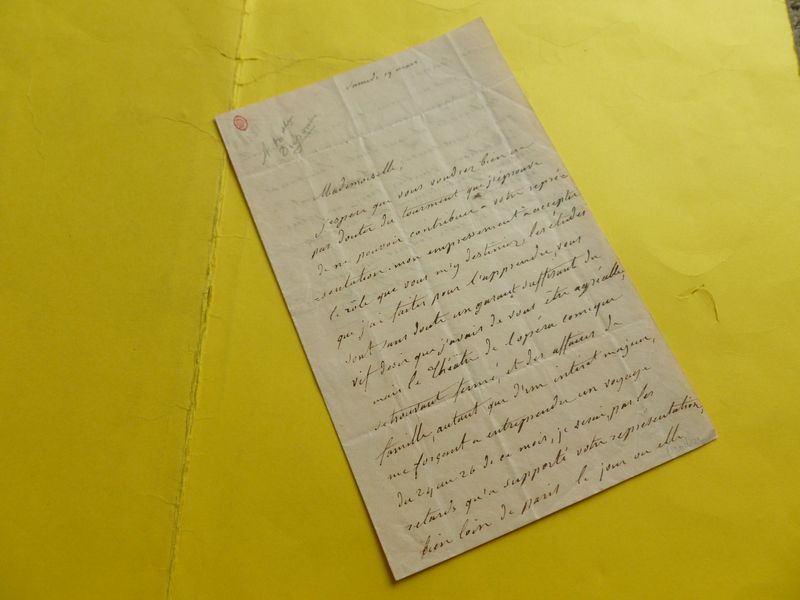 Samedi 19 mars
Mademoiselle,
J'espere que vous voudrez bien ne
pas douter du tourment que j'éprouve
de ne pouvoir contribuer a votre repré
=sentation. mon empressement a accepter
le rôle que vous m'y destiniez, les études
que j'ai faites pour l'apprendre, vous
sont sans doute un garant suffisant du
vif desir que j'avais de vous être agréable,
mais le Théâtre de l'opéra comique
se trouvant fermé, et des affaires de
famille, autant que d'un interet majeur,
me forçant a entreprendre un voyage
du 24 au 26 de ce mois, je serai, par les
retards qu'a supporté votre représentation,
bien loin de paris le jour ou elle